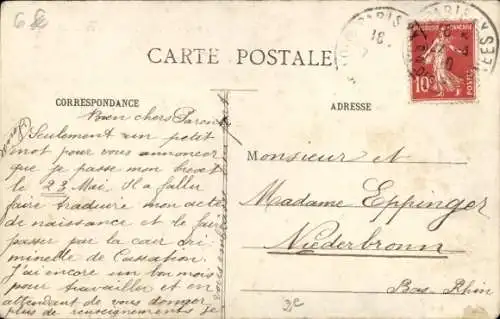 6 €
PARIS
PARIS
CARTE POSTALE
10c
CORRESPONDANCE
ADRESSE
Bien chers Parents
Seulement un petit
mot pour vous annoncer
que je passe mon brevet
le 23 Mai. Il a fallu
faire traduire mon acte
de naissance et le faire
passer par la cour cri-
minelle de Cassation.
J'ai encore un bon mois
pour travailler et en
attendant de vous donner
plus de renseignements je
Monsieur et
Madame Eppinger
Niederbronn
Bas Rhin